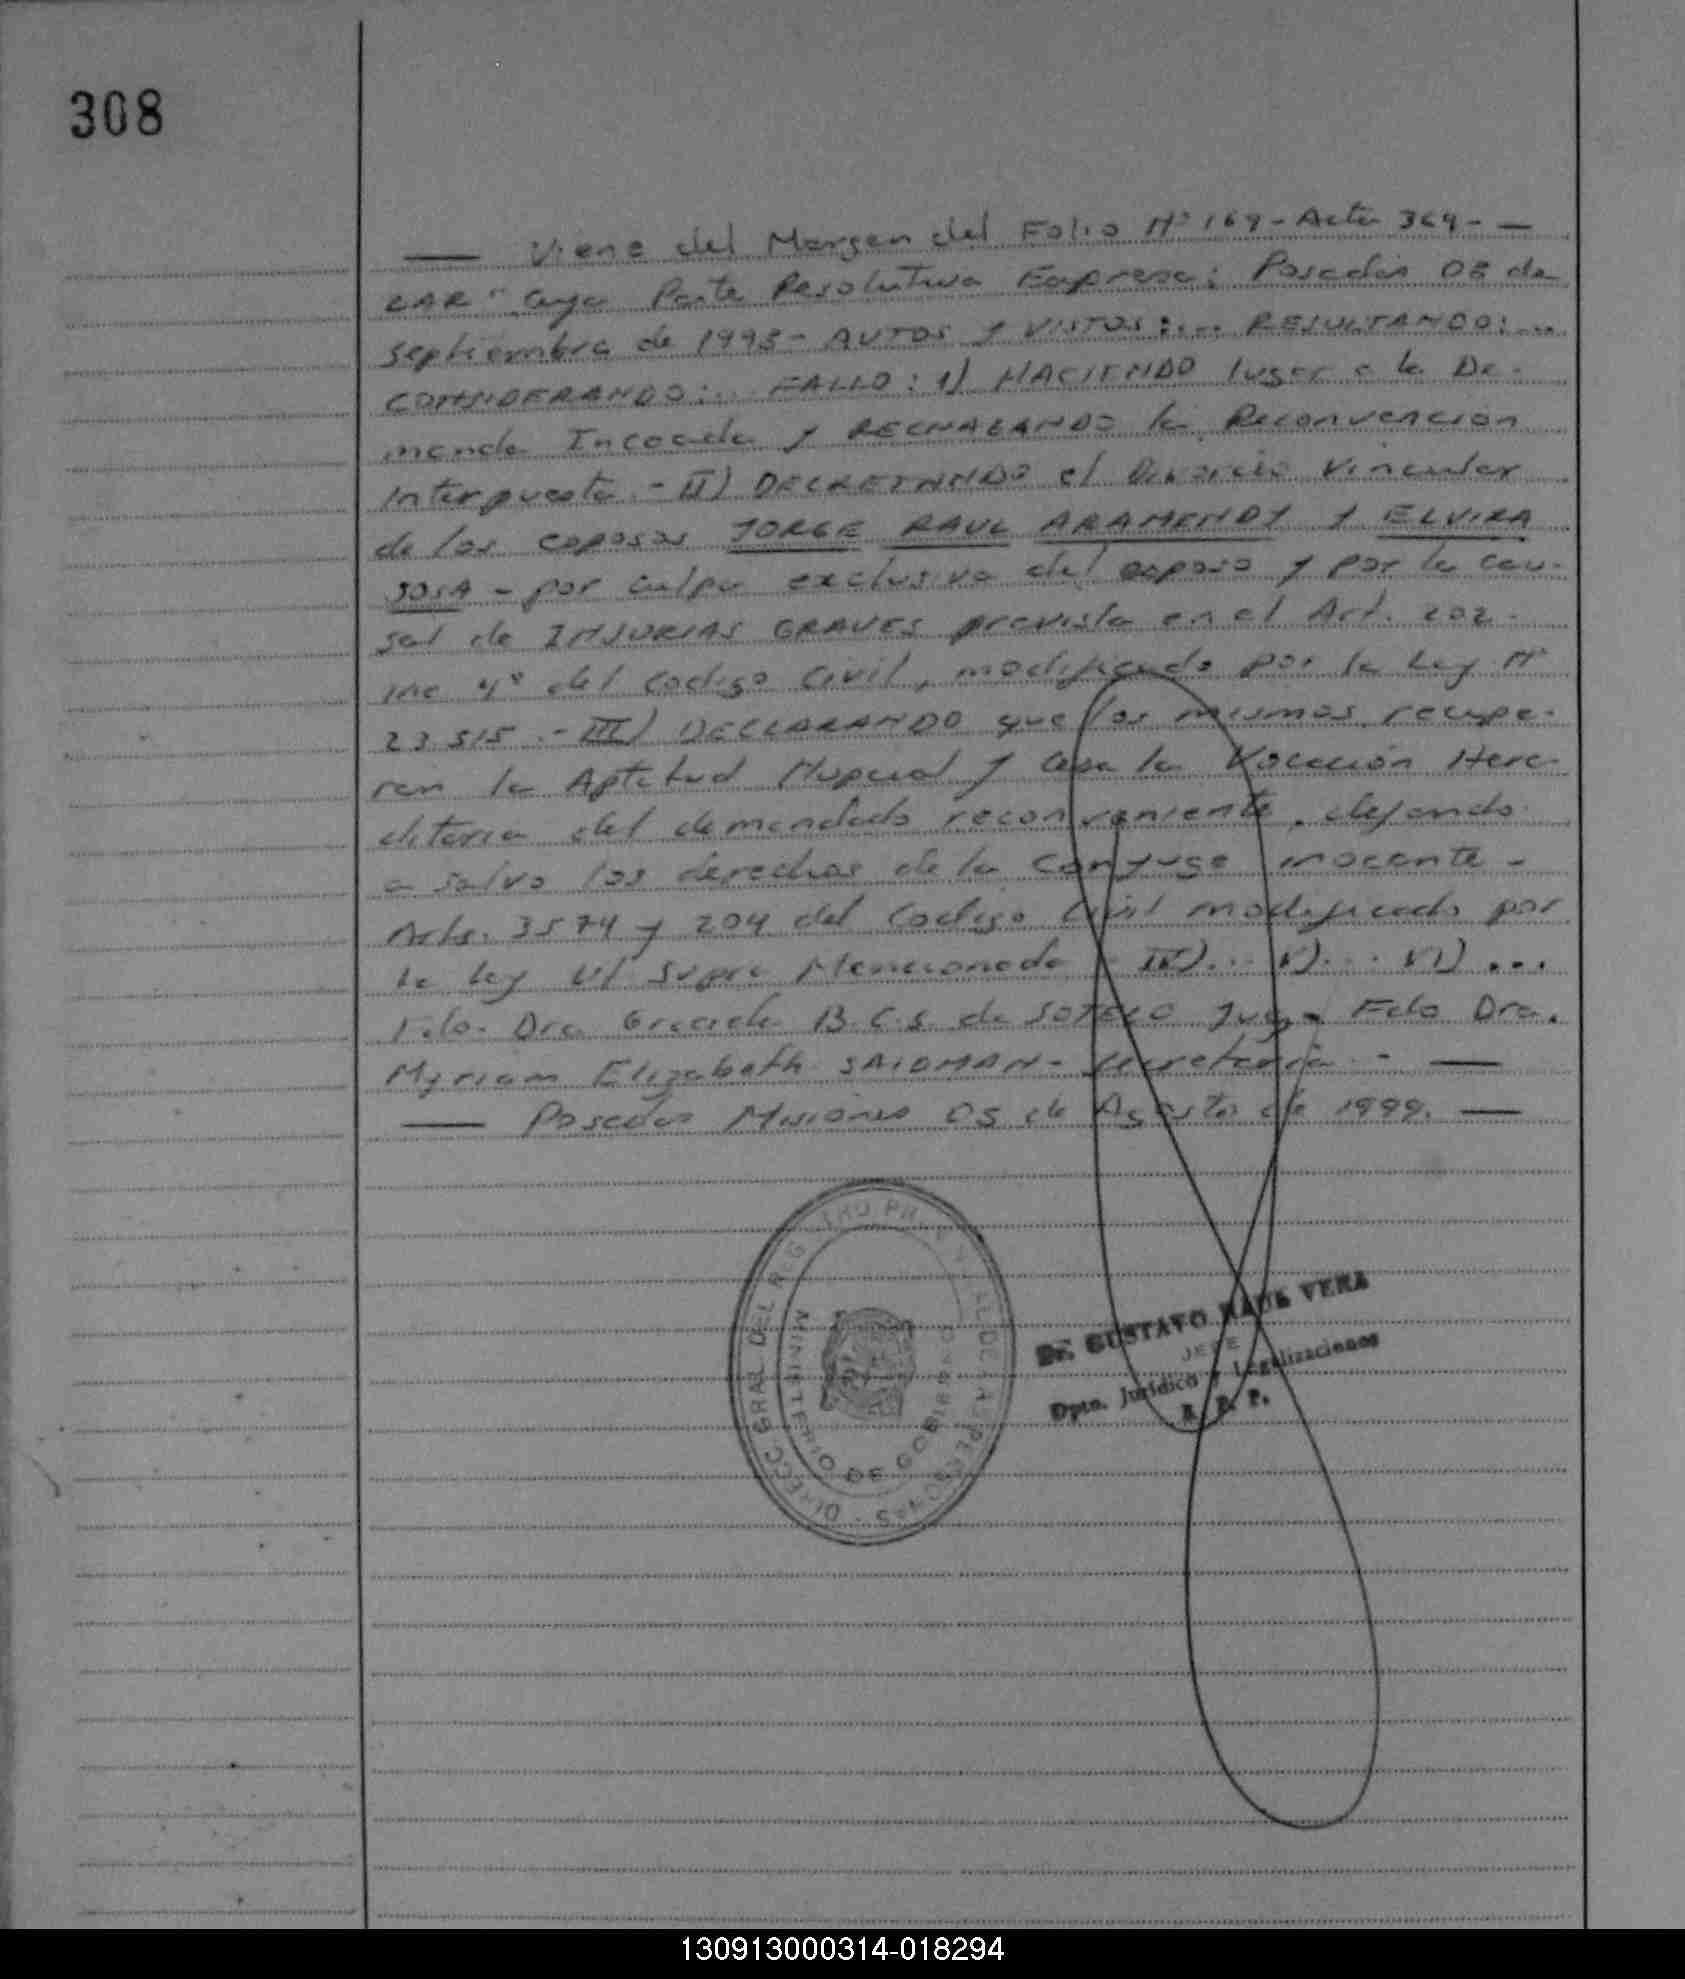 308
Viene del Margen del Folio Nº 169 - Acta 369 -
LAR" cuya Parte Resolutiva Expresa: Posadas 08 de
septiembre de 1993 - AUTOS y VISTOS:... RESULTANDO:...
CONSIDERANDO:... FALLO: 1) HACIENDO lugar a la De-
manda Incoada y RECHAZANDO la Reconvencion
Interpuesta - II) DECRETANDO el Divorcio Vincular
de los esposos JORGE RAUL ARAMENDY y ELVIRA
SOSA - por culpa exclusiva del esposo y por la cau-
sal de INJURIAS GRAVES prevista en el Art. 202 -
inc 4º del Codigo Civil, modificado por la Ley Nº
23515 - III) DECLARANDO que los mismos recupe-
ran la Aptitud Nupcial y cesa la Vocación Here-
ditaria del demandado reconviniente, dejando
a salvo los derechos de la Conyuge inocente -
Arts. 3574 y 204 del Codigo Civil modificado por
la Ley Ut Supra Mencionada - IV)... V)... VI)...
Fdo. Dra Graciela B.C.S. de SOTELO Juez - Fdo Dra.
Myriam Elizabeth SAIDMAN - Secretaria -
Posadas Misiones 05 de Agosto de 1999.
DIRECC GRAL DEL REGISTRO PROV. DE LAS PERSONAS
MINISTERIO DE GOBIERNO
Dr. GUSTAVO RAUL VERA
JEFE
Dpto. Jurídico y Legalizaciones
R. P. P.
130913000314-018294